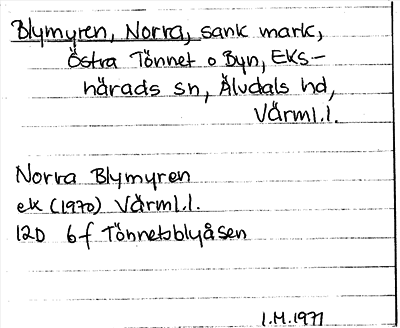 Blymyren, Norra, sank mark,
Östra Tönnet o Byn, Eks-
härads sn, Älvdals hd,
Värml.l.
Norra Blymyren
ek (1970) Värml.l.
12D 6f Tönnetsblyåsen
I.M. 1971